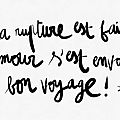 a rupture est fai
mour s'est envo
bon voyage!